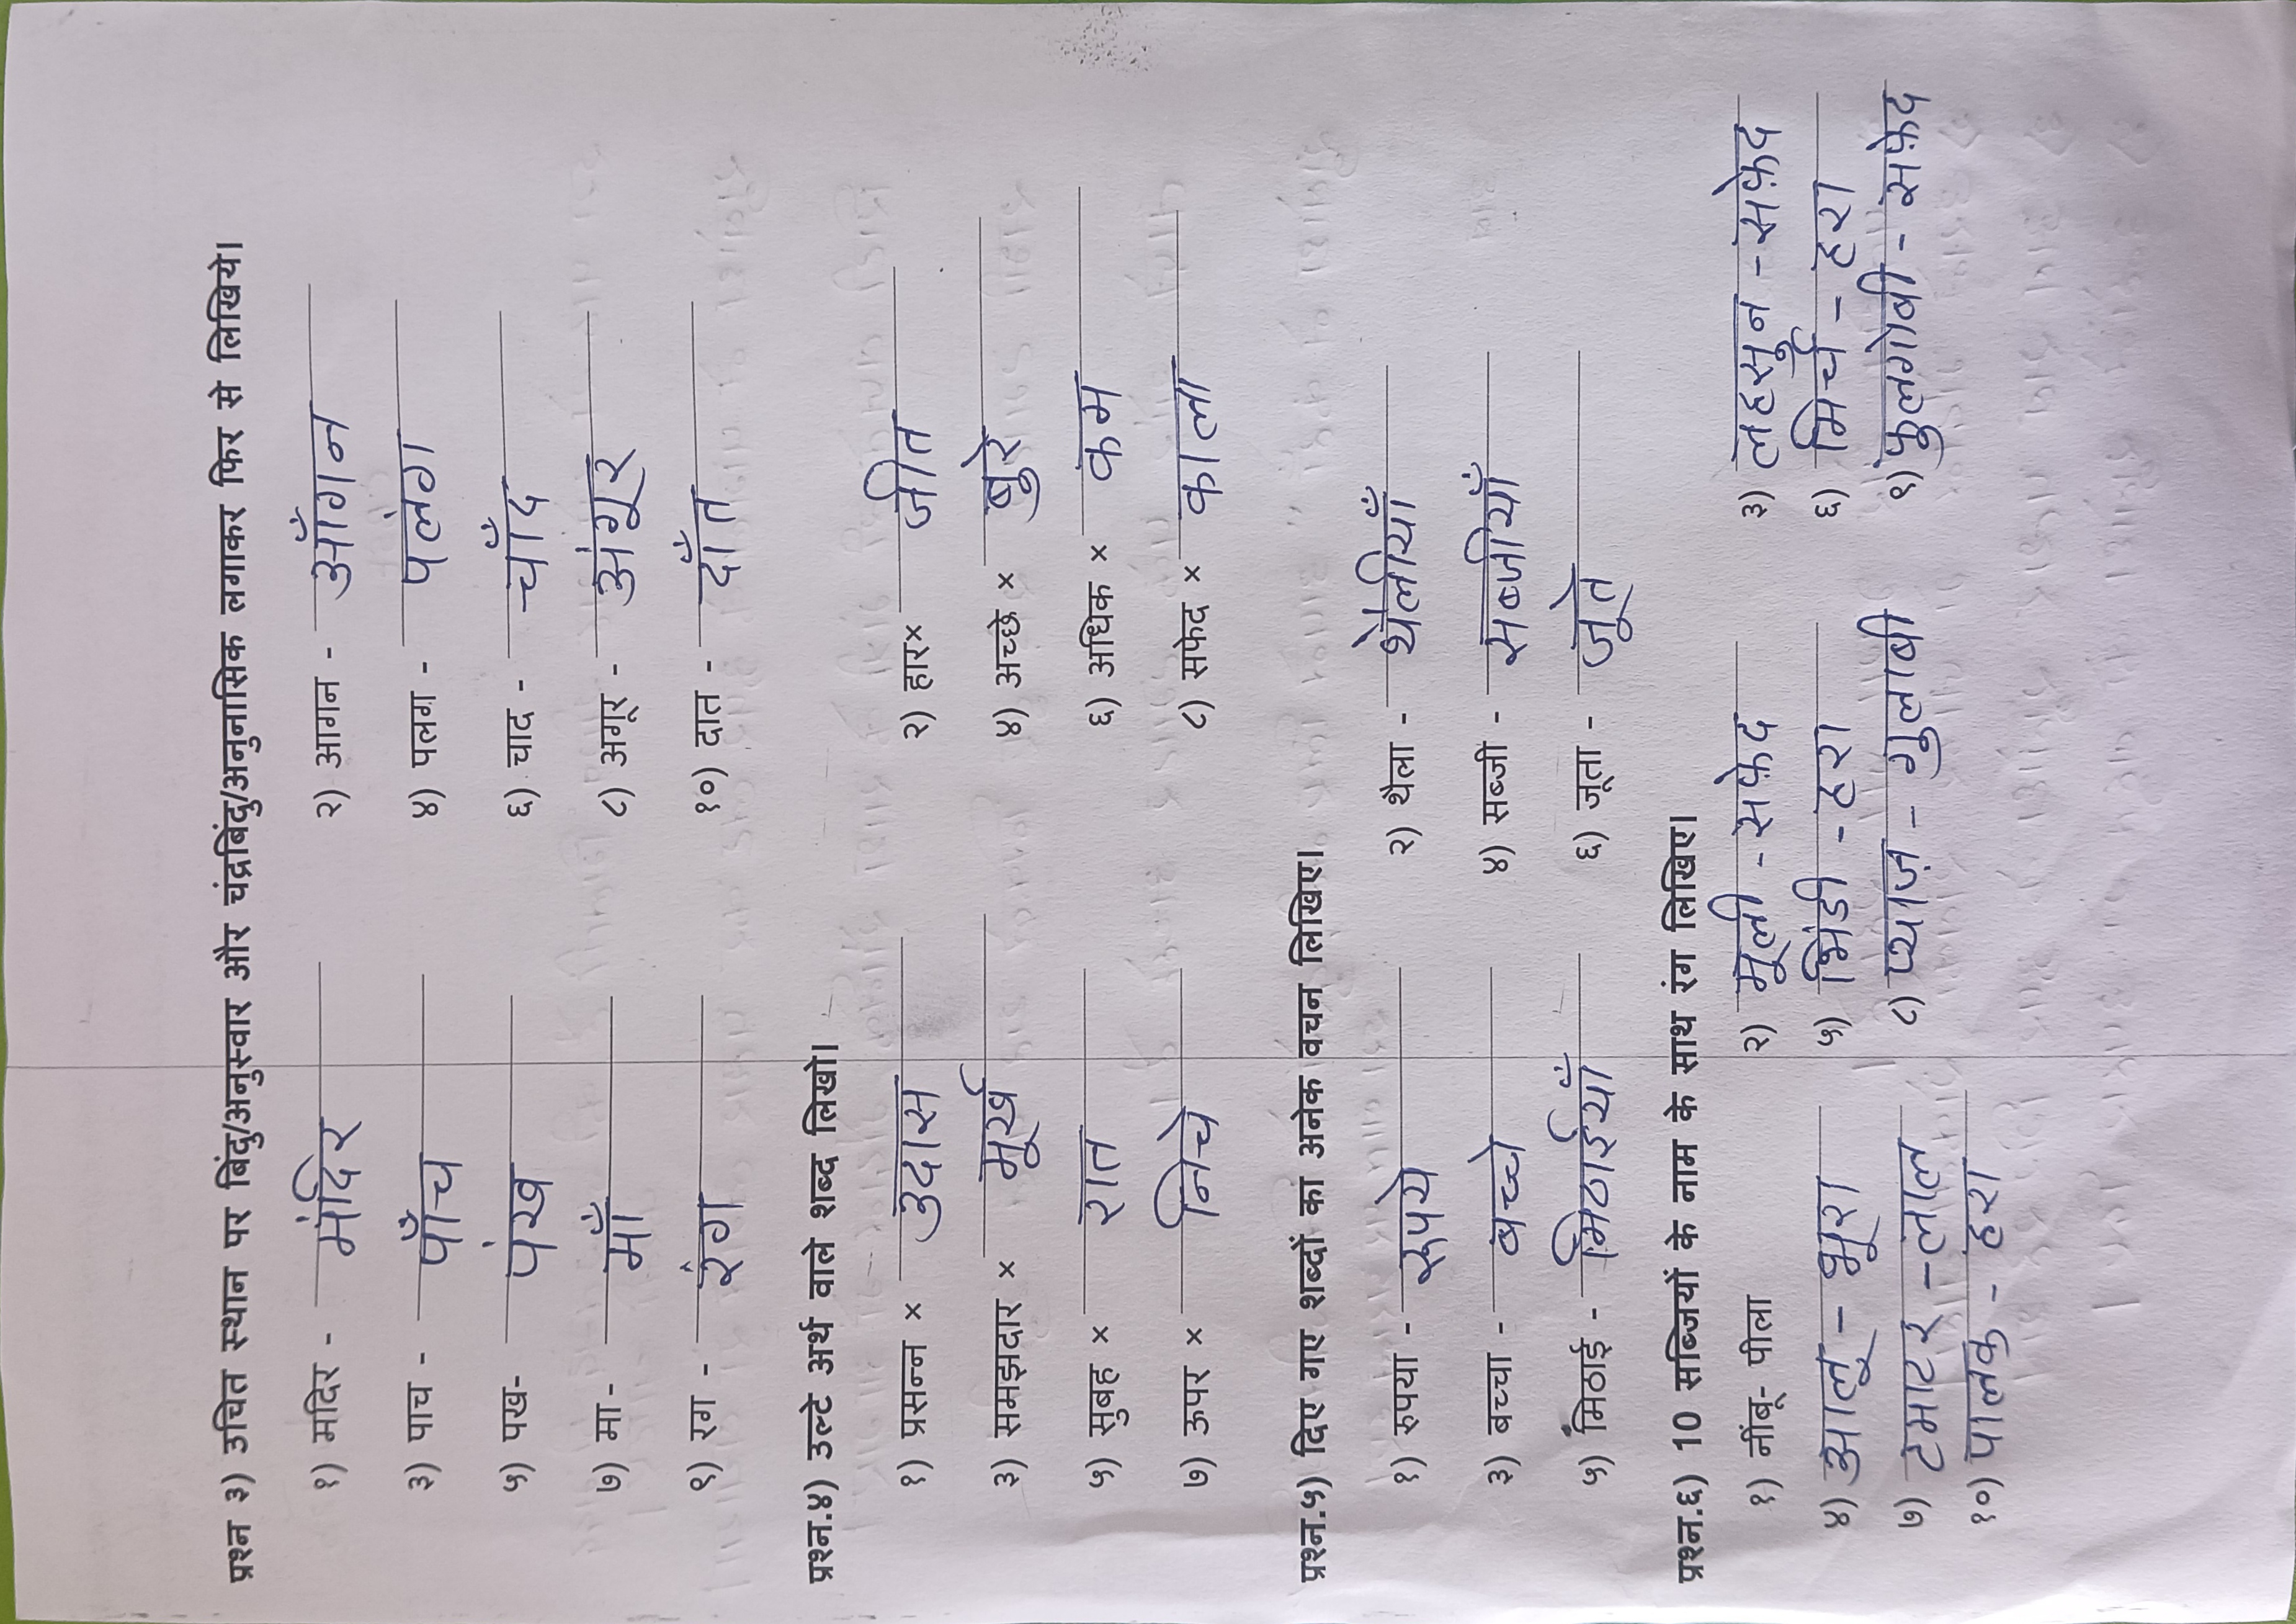 प्रश्न ३) उचित स्थान पर बिंदु/अनुस्वार और चंद्रबिंदु/अनुनासिक लगाकर फिर से लिखिये।
१) मदिर - मंदिर २) आगन - आँगन
३) पाच - पाँच ४) पलग - पलंग
५) पख- पंख ६) चाद - चाँद
७) मा - माँ ८) अगूर - अंगूर
९) रग - रंग १०) दात - दाँत
प्रश्न.४) उल्टे अर्थ वाले शब्द लिखो।
१) प्रसन्न × उदास २) हार× जीत
३) समझदार × मूर्ख ४) अच्छे × बुरे
५) सुबह × रात ६) अधिक × कम
७) ऊपर × निचे ८) सफेद × काला
प्रश्न.५) दिए गए शब्दों का अनेक वचन लिखिए।
१) रुपया - रूपये २) थैला - थैलीयाँ
३) बच्चा - बच्चे ४) सब्जी - सब्जीयाँ
५) मिठाई - मिठाईयाँ ६) जूता - जूते
प्रश्न.६) 10 सब्जियों के नाम के साथ रंग लिखिए।
१) नींबू- पीला २) मूली - सफ़ेद ३) लहसून - सफ़ेद
४) आलू - भूरा ५) भिंडी - हरा ६) मिर्च - हरा
७) टमाटर - लाल ८) प्याज़ - गुलाबी ९) फुलगोबी - सफ़ेद
१०) पालक - हरा